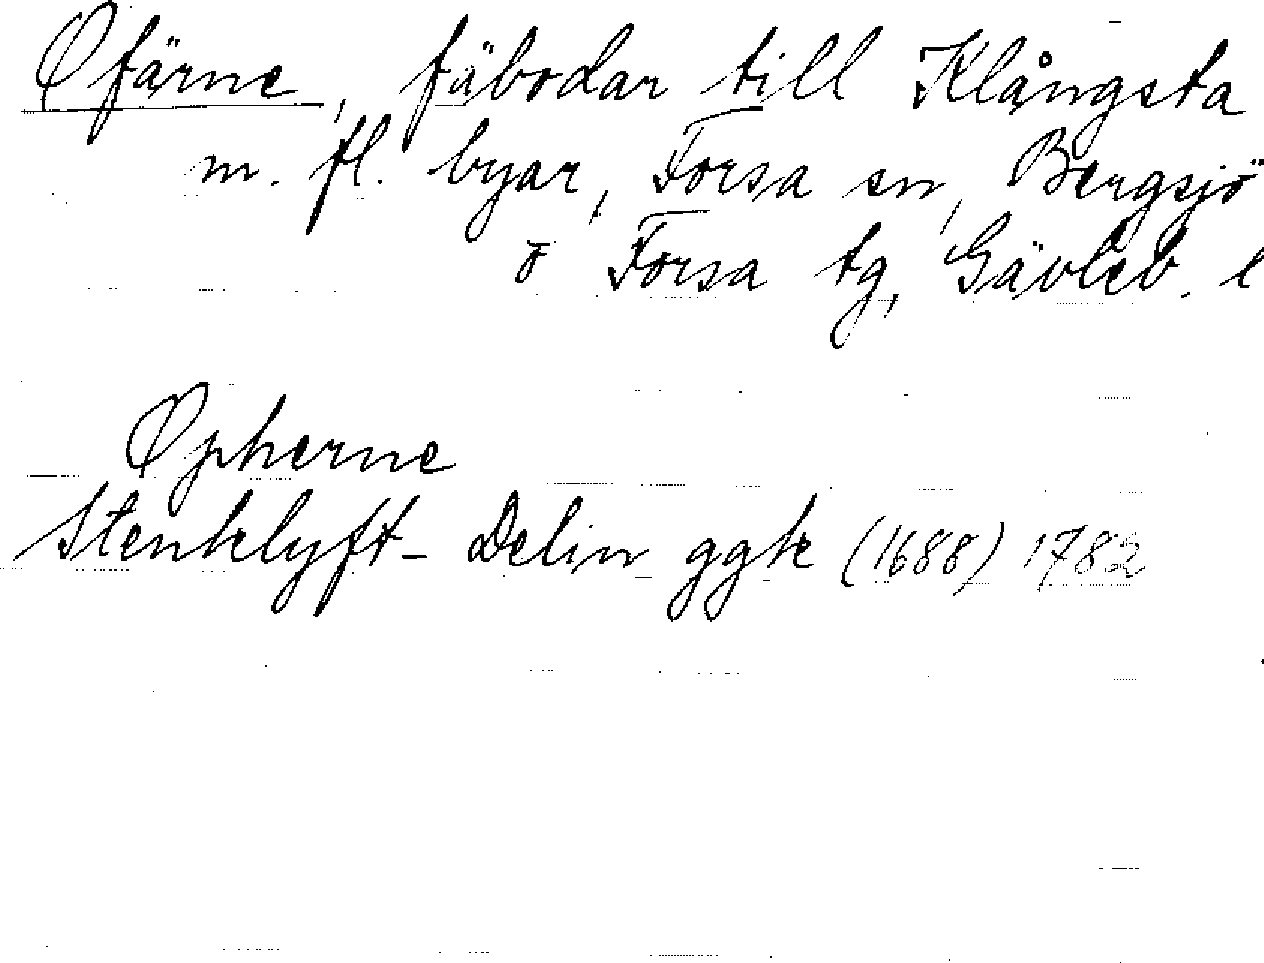 Øfärne, fäbodar till Klångsta
m. fl. byar, Forsa sn, Bergsjö
o Forsa tg, Gävleb. l
Øpherne
Stenklyft- Delin ggk (1688) 1782